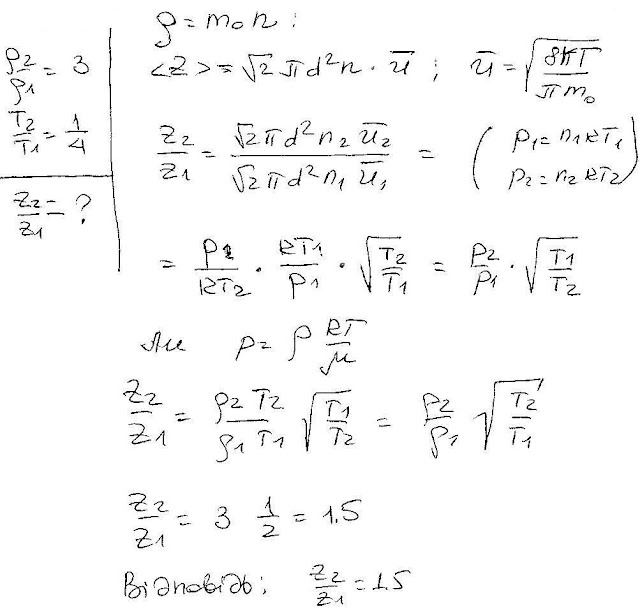 ρ = m₀n ;
ρ₂/ρ₁ = 3
T₂/T₁ = 1/4
z₂/z₁ = ?
<z> = √2 πd²n · ū ; ū = √(8kT/πm₀)
z₂/z₁ = √2 πd²n₂ ū₂ / √2 πd²n₁ ū₁ = ( p₁ = n₁kT₁
p₂ = n₂kT₂ )
= p₂/kT₂ · kT₁/p₁ · √(T₂/T₁) = p₂/p₁ · √(T₁/T₂)
Але p = ρ RT/μ
z₂/z₁ = ρ₂ T₂/ρ₁ T₁ √(T₁/T₂) = ρ₂/ρ₁ √(T₂/T₁)
z₂/z₁ = 3 1/2 = 1.5
Відповідь: z₂/z₁ = 1.5